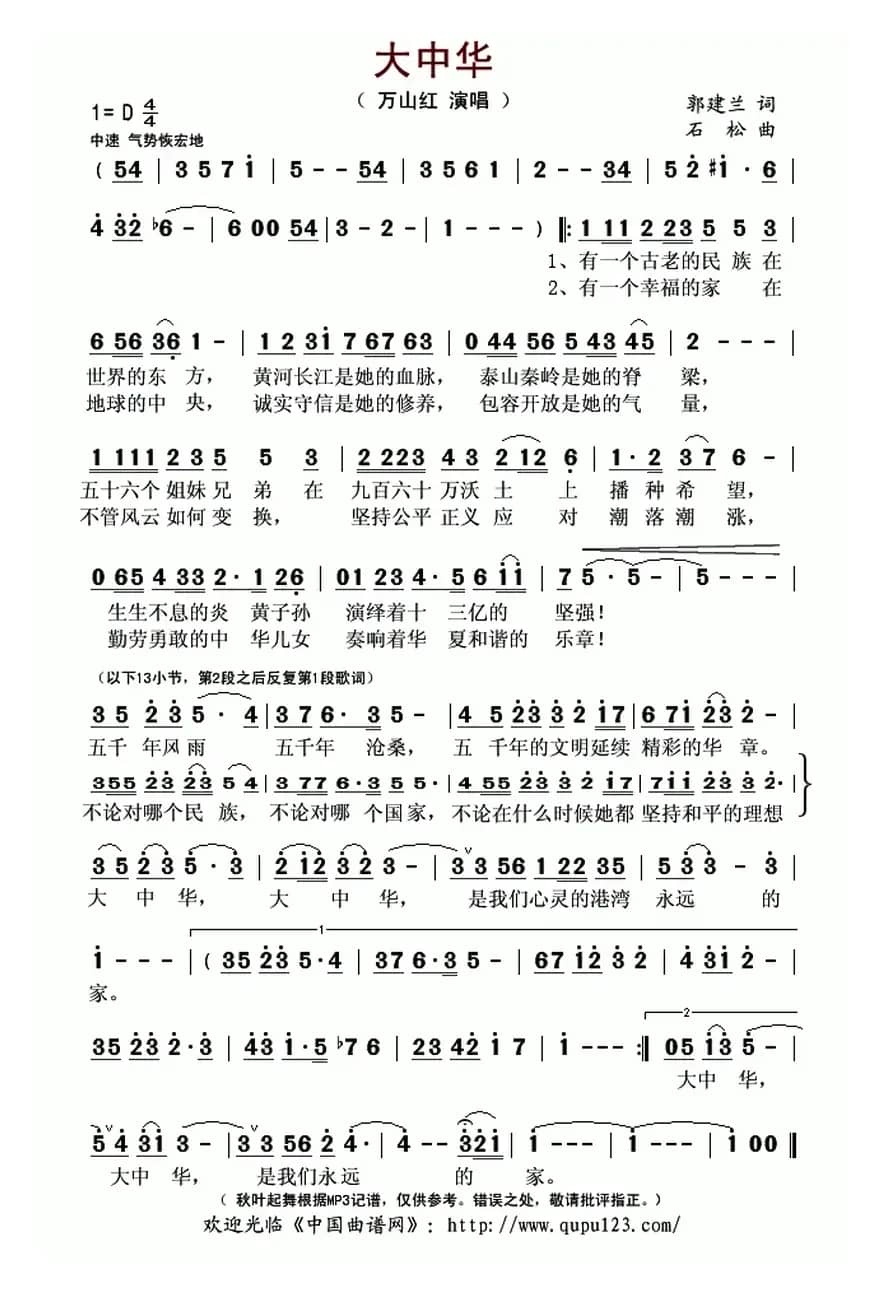 大中华
（ 万山红 演唱 ）
1= D 4/4
郭建兰 词
中速 气势恢宏地
石 松 曲
( 54 | 3 5 7 i | 5 - - 54 | 3 5 6 1 | 2 - - 34 | 5 2 #i · 6 |
4 32 b6 - | 6 00 54 | 3 - 2 - | 1 - - - ) ‖: 1 11 2 23 5 5 3 |
1、有一个古老的民 族 在
2、有一个幸福的家 在
6 56 36 1 - | 1 2 31 7 67 63 | 0 44 56 5 43 45 | 2 - - - |
世界的东 方， 黄河长江是她的血脉， 泰山秦岭是她的脊 梁，
地球的中 央， 诚实守信是她的修养， 包容开放是她的气 量，
1 111 2 3 5 5 3 | 2 223 4 3 2 12 6 | 1· 2 3 7 6 - |
五十六个 姐妹 兄 弟 在 九百六十 万沃 土 上 播 种 希 望，
不管风云 如何 变 换， 坚持公平 正义 应 对 潮 落 潮 涨，
0 65 4 33 2· 1 26 | 01 23 4· 5 6 11 | 7 5 · 5 - | 5 - - - |
生生不息的炎 黄子孙 演绎着十 三亿的 坚强！
勤劳勇敢的中 华儿女 奏响着华 夏和谐的 乐章！
（以下13小节，第2段之后反复第1段歌词）
3 5 2 3 5 · 4 | 3 7 6· 3 5 - | 4 5 23 3 2 17 | 6 71 23 2 - |
五千 年风雨 五千年 沧桑， 五 千年的文明延续 精彩的华 章。
355 23 23 5 4 | 3 77 6·3 5 5· | 4 55 23 3 2 17 | 7 11 23 3 2· |
不论对哪个民 族， 不论对哪 个国家， 不论在什么时候她都 坚持和平的理想
3 5 2 3 5 · 3 | 2 12 3 2 3 - | 3 3 56 1 22 35 | 5 3 3 - 3 |
大 中 华， 大 中 华， 是我们心灵的港湾 永远 的
1
i - - - | ( 35 23 5·4 | 37 6·3 5 - | 67 12 3 2 | 4 31 2 - |
家。
2
35 23 2·3 | 43 1·5 b7 6 | 23 42 1 7 | 1 - - - :‖ 05 13 5 - |
大中 华，
5 4 31 3 - | 3 3 56 2 4· | 4 - - 321 | 1 - - - | 1 - - - | 1 00 ‖
大中 华， 是我们永远 的 家。
（ 秋叶起舞根据MP3记谱，仅供参考。错误之处，敬请批评指正。）
欢迎光临《中国曲谱网》：http://www.qupu123.com/